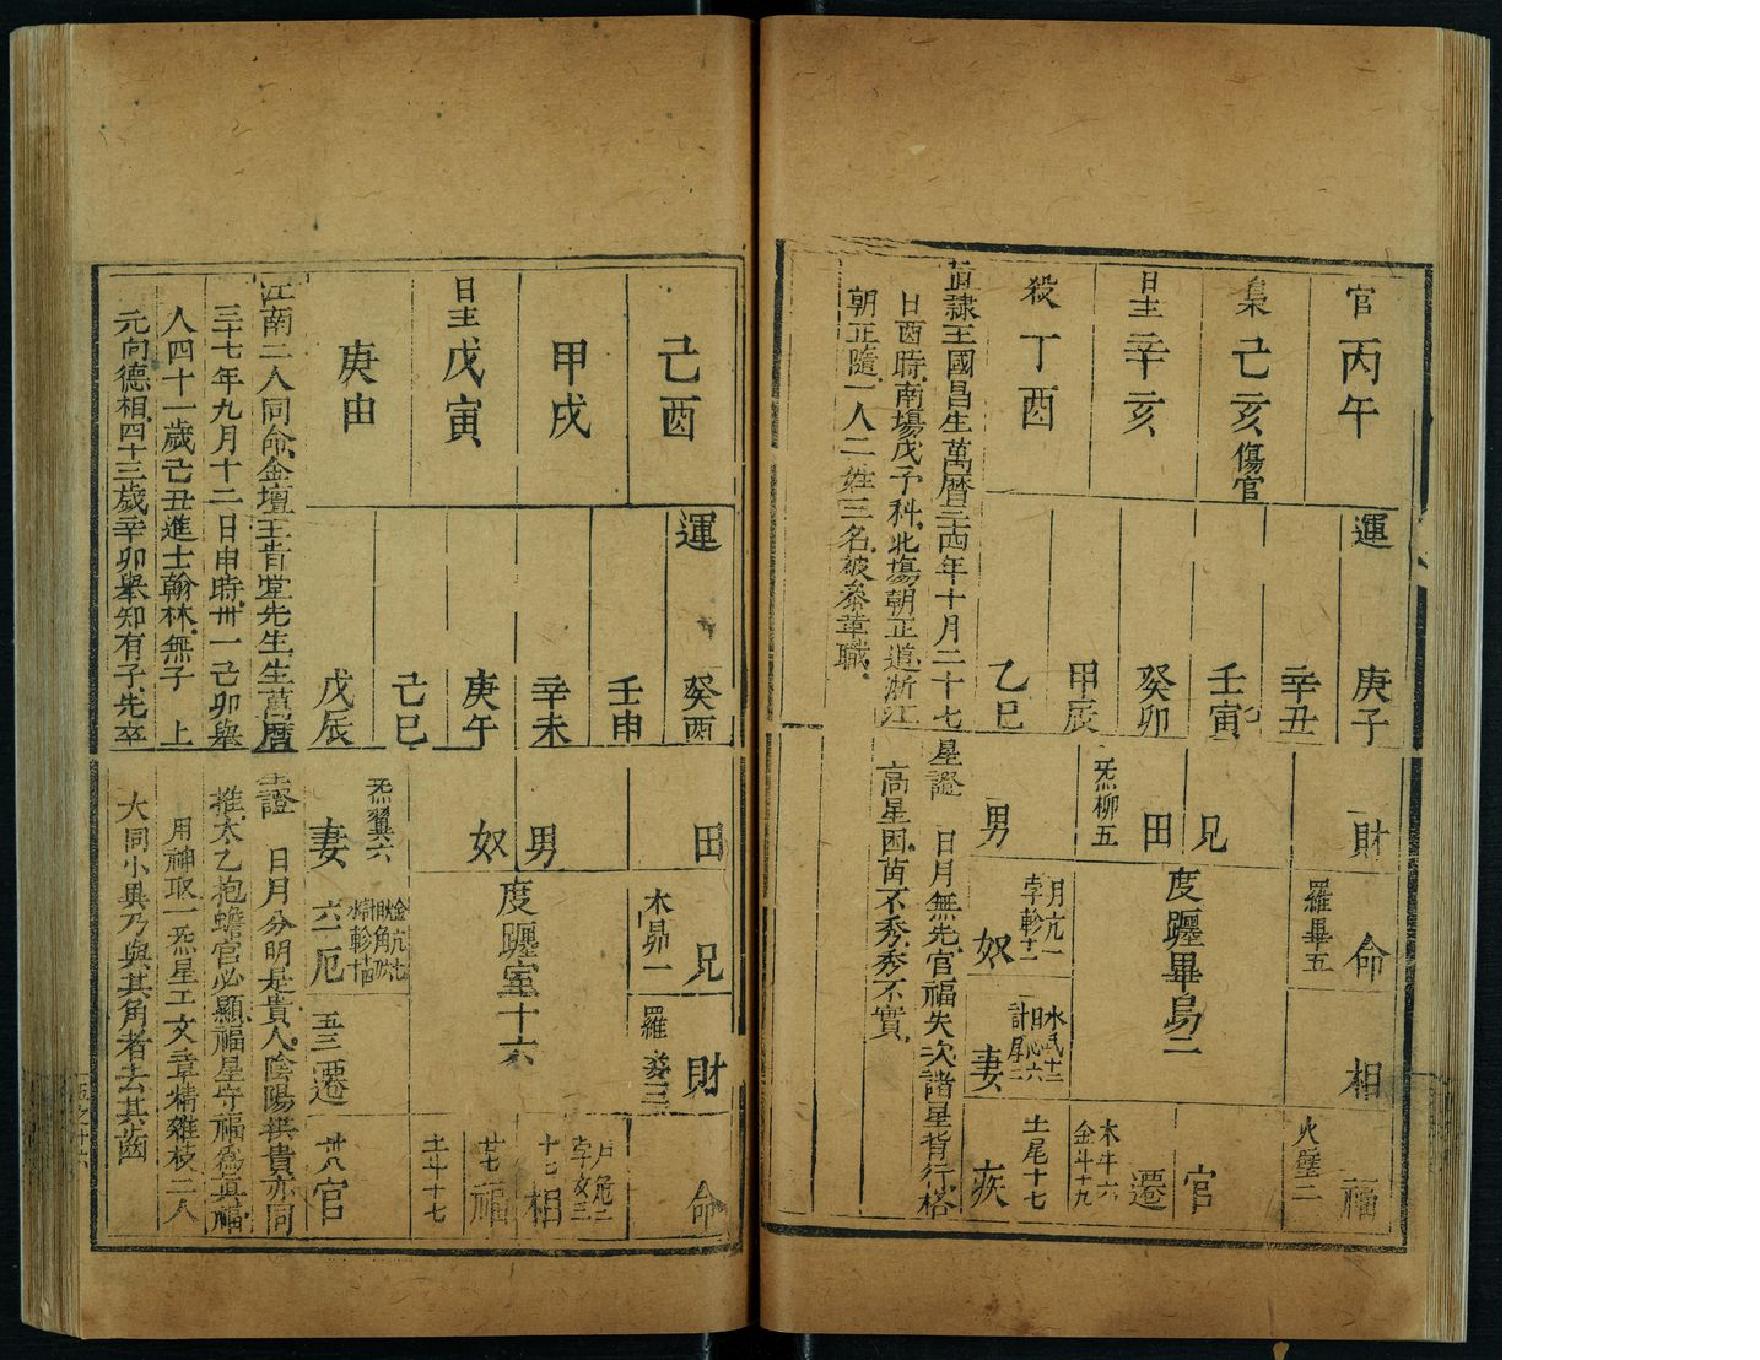 官 丙午
梟 己亥 傷官
日主 辛亥
殺 丁酉
運 庚子
辛丑
壬寅
癸卯
甲辰
乙巳
直隸王國昌生萬曆三十四年十月二十七
日酉時南場戊子科北場朝正道浙江
朝正隨一人二姓三名被叅革職
財
命
羅畢五
相
福
火壁二
兄
田
炁柳五
男
度躔畢烏二
月亢一
孛軫十二
奴
水氐十二
日心六
計尾二
妻
官
遷
木牛六
金斗十九
土尾十七
疾
星證 日月無光官福失次諸星背行格
高星困苗不秀秀不實
己酉
甲戌
日主 戊寅
庚申
運 癸酉
壬申
辛未
庚午
己巳
戊辰
江南二人同命金壇王肯堂先生生萬曆
三十七年九月十二日申時卅一己卯舉
人四十一歲己丑進士翰林無子 上
元向德相四十三歲辛卯舉知有子先卒
田
兄
木昴一
財
羅參三
命
男
奴
炁翼六
妻
度躔室十六
金亢七
水軫十
六 厄
五三 遷
月危二
孛女三
十七 相
廿七 福
土斗十七
廿八 官
星證 日月分明是貴人陰陽拱貴亦同
推太乙抱蟾官必顯福星守福為真福
用神取一炁星工文章精雖枝二人
大同小異乃與其角者去其齒